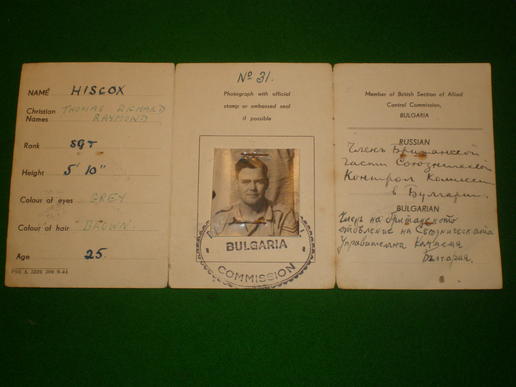 NAME HISCOX
Christian THOMAS RICHARD
Names RAYMOND
Rank SGT
Height 5' 10"
Colour of eyes GREY
Colour of hair BROWN
Age 25.
No 31.
Photograph with official
stamp or embossed seal
if possible
BULGARIA
COMMISSION
Member of British Section of Allied
Control Commission,
BULGARIA
RUSSIAN
Членъ Британской
части Союзнической
Контрол Комиссии
в Булгарии.
BULGARIAN
Членъ на Британското
отделение на Съюзническата
Управителна Комисия
България.